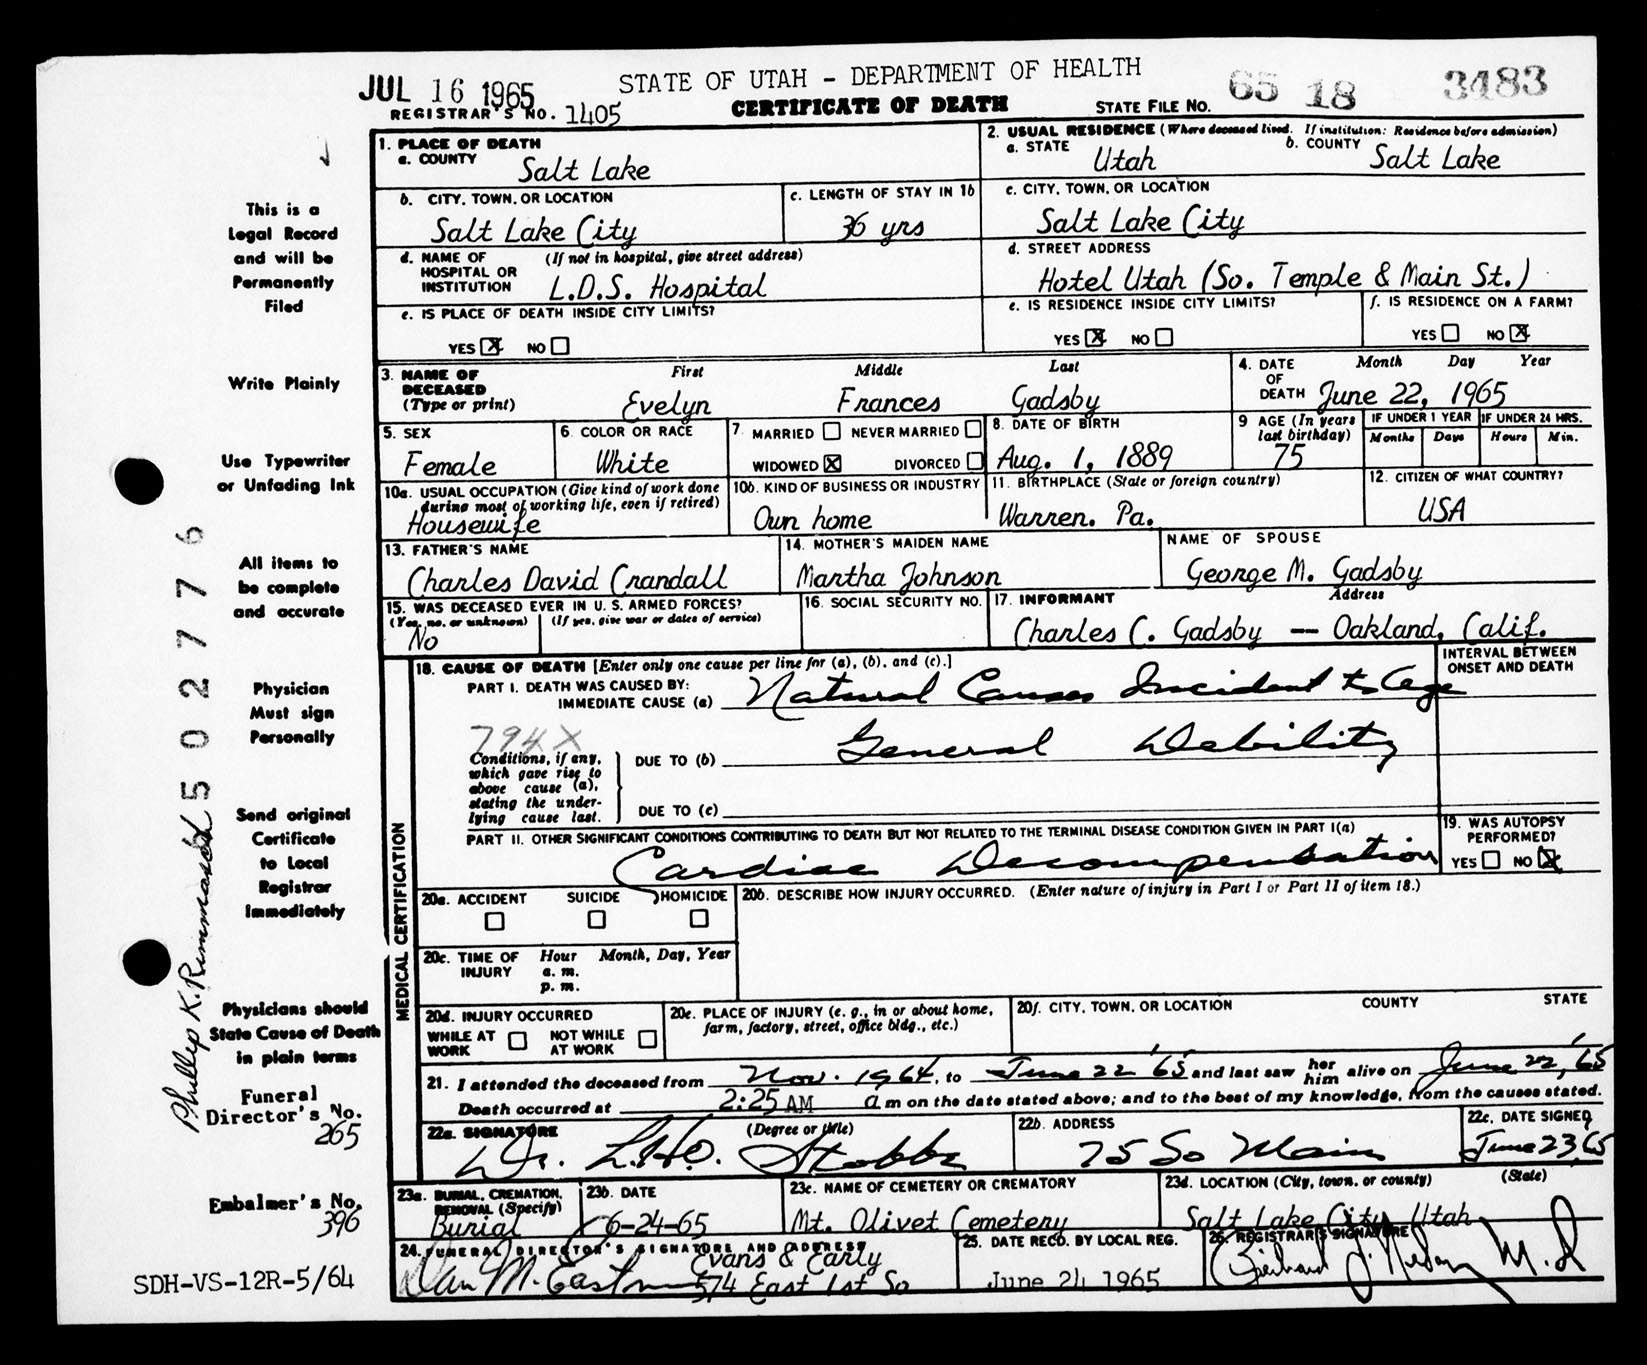 JUL 16 1965
STATE OF UTAH – DEPARTMENT OF HEALTH
65 18 3483
REGISTRAR'S NO. 1405
CERTIFICATE OF DEATH
STATE FILE NO.
1. PLACE OF DEATH
a. COUNTY
Salt Lake
2. USUAL RESIDENCE (Where deceased lived. If institution: Residence before admission)
a. STATE
Utah
b. COUNTY
Salt Lake
b. CITY, TOWN, OR LOCATION
Salt Lake City
c. LENGTH OF STAY IN 1b
36 yrs
c. CITY, TOWN, OR LOCATION
Salt Lake City
d. NAME OF (If not in hospital, give street address)
HOSPITAL OR
INSTITUTION
L.D.S. Hospital
d. STREET ADDRESS
Hotel Utah (So. Temple & Main St.)
e. IS PLACE OF DEATH INSIDE CITY LIMITS?
YES X NO
e. IS RESIDENCE INSIDE CITY LIMITS?
YES X NO
f. IS RESIDENCE ON A FARM?
YES NO X
3. NAME OF
DECEASED
(Type or print)
First Middle Last
Evelyn Frances Gadsby
4. DATE
OF
DEATH
Month Day Year
June 22, 1965
5. SEX
Female
6. COLOR OR RACE
White
7. MARRIED NEVER MARRIED
WIDOWED X DIVORCED
8. DATE OF BIRTH
Aug. 1, 1889
9 AGE (In years
last birthday)
75
IF UNDER 1 YEAR
Months Days
IF UNDER 24 HRS.
Hours Min.
10a. USUAL OCCUPATION (Give kind of work done
during most of working life, even if retired)
Housewife
10b. KIND OF BUSINESS OR INDUSTRY
Own home
11. BIRTHPLACE (State or foreign country)
Warren. Pa.
12. CITIZEN OF WHAT COUNTRY?
USA
13. FATHER'S NAME
Charles David Crandall
14. MOTHER'S MAIDEN NAME
Martha Johnson
NAME OF SPOUSE
George M. Gadsby
15. WAS DECEASED EVER IN U. S. ARMED FORCES?
(Yes, no, or unknown) (If yes, give war or dates of service)
No
16. SOCIAL SECURITY NO.
17. INFORMANT Address
Charles C. Gadsby — Oakland, Calif.
MEDICAL CERTIFICATION
18. CAUSE OF DEATH [Enter only one cause per line for (a), (b), and (c).]
INTERVAL BETWEEN
ONSET AND DEATH
PART I. DEATH WAS CAUSED BY:
IMMEDIATE CAUSE (a) Natural Causes Incident to Age
794X
Conditions, if any,
which gave rise to
above cause (a),
stating the under-
lying cause last.
DUE TO (b) General Debility
DUE TO (c)
PART II. OTHER SIGNIFICANT CONDITIONS CONTRIBUTING TO DEATH BUT NOT RELATED TO THE TERMINAL DISEASE CONDITION GIVEN IN PART I(a)
Cardiac Decompensation
19. WAS AUTOPSY
PERFORMED?
YES NO X
20a. ACCIDENT SUICIDE HOMICIDE
20b. DESCRIBE HOW INJURY OCCURRED. (Enter nature of injury in Part I or Part II of item 18.)
20c. TIME OF Hour Month, Day, Year
INJURY a. m.
p. m.
20d. INJURY OCCURRED
WHILE AT NOT WHILE
WORK AT WORK
20e. PLACE OF INJURY (e. g., in or about home,
farm, factory, street, office bldg., etc.)
20f. CITY, TOWN, OR LOCATION COUNTY STATE
21. I attended the deceased from Nov. 1964, to June 22 '65 and last saw her him alive on June 22, '65
Death occurred at 2:25 AM a m on the date stated above; and to the best of my knowledge, from the causes stated.
22a. SIGNATURE (Degree or title)
Dr. L.H.O. Stobbe
22b. ADDRESS
75 So Main
22c. DATE SIGNED
June 23, 65
23a. BURIAL, CREMATION,
REMOVAL (Specify)
Burial
23b. DATE
6-24-65
23c. NAME OF CEMETERY OR CREMATORY
Mt. Olivet Cemetery
23d. LOCATION (City, town, or county) (State)
Salt Lake City, Utah
24. FUNERAL DIRECTOR'S SIGNATURE AND ADDRESS
Evans & Early
574 East 1st So
25. DATE RECD. BY LOCAL REG.
June 24 1965
26. REGISTRAR'S SIGNATURE
M.D
This is a
Legal Record
and will be
Permanently
Filed
Write Plainly
Use Typewriter
or Unfading Ink
All items to
be complete
and accurate
Physician
Must sign
Personally
Send original
Certificate
to Local
Registrar
Immediately
Physicians should
State Cause of Death
in plain terms
Funeral
Director's No.
265
Embalmer's No.
396
SDH-VS-12R-5/64
Phillip K. Rimmasch
502776